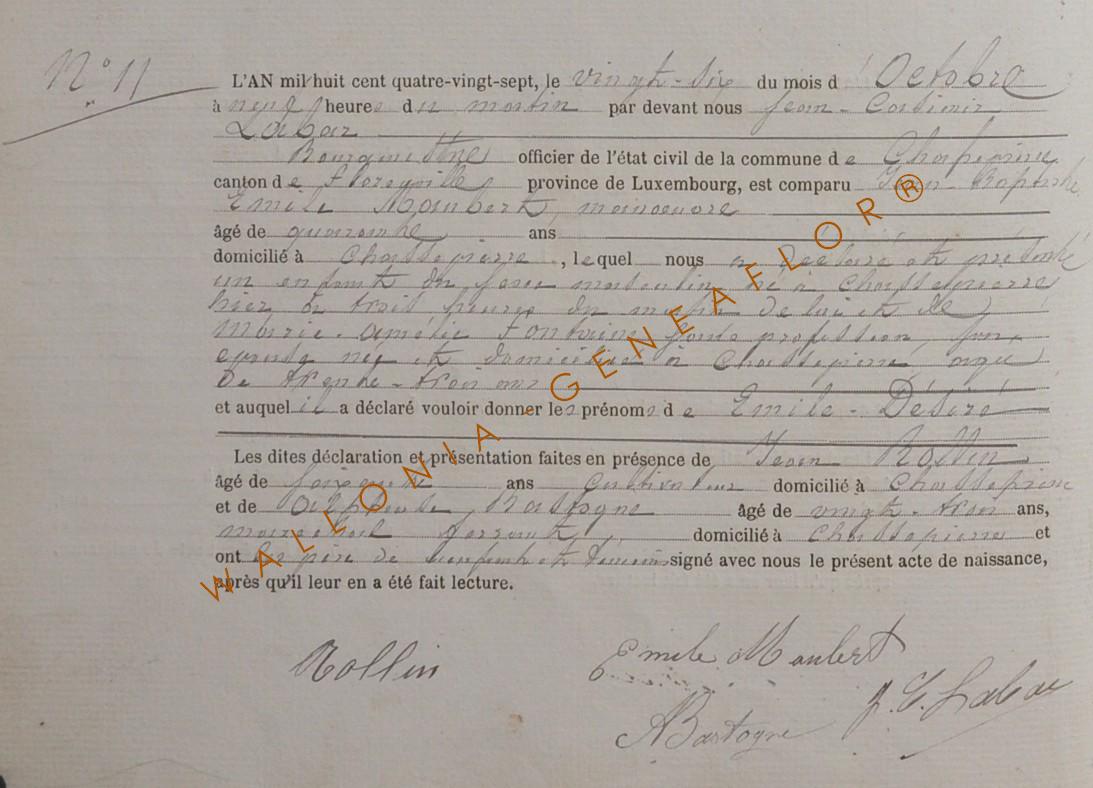 N° 11
L'AN mil huit cent quatre-vingt-sept, le vingt-six du mois d' Octobre
à neuf heures du matin par devant nous Jean-Casimir
Labar
Bourgmestre officier de l'état civil de la commune de Chassepierre
canton de Florenville province de Luxembourg, est comparu Jean Baptiste
Emile Maubert, manoeuvre
âgé de quarante ans
domicilié à Chassepierre, lequel nous a déclaré et présenté
un enfant du sexe masculin né à Chassepierre
hier à trois heures du matin de lui et de
Marie-Amélie Fontaine sans profession, son
épouse née et domiciliée à Chassepierre âgée
de trente-trois ans
et auquel il a déclaré vouloir donner les prénoms de Emile-Désiré
Les dites déclaration et présentation faites en présence de Jean Rollin
âgé de soixante ans cultivateur domicilié à Chassepierre
et de Alphonse Bastogne âgé de vingt-trois ans,
maréchal ferrant, domicilié à Chassepierre et
ont les père de l'enfant et témoins signé avec nous le présent acte de naissance,
après qu'il leur en a été fait lecture.
Rollin
Emile Maubert
J. C. Labar
A Bastogne
WALLONIA-GENEAFLOR®